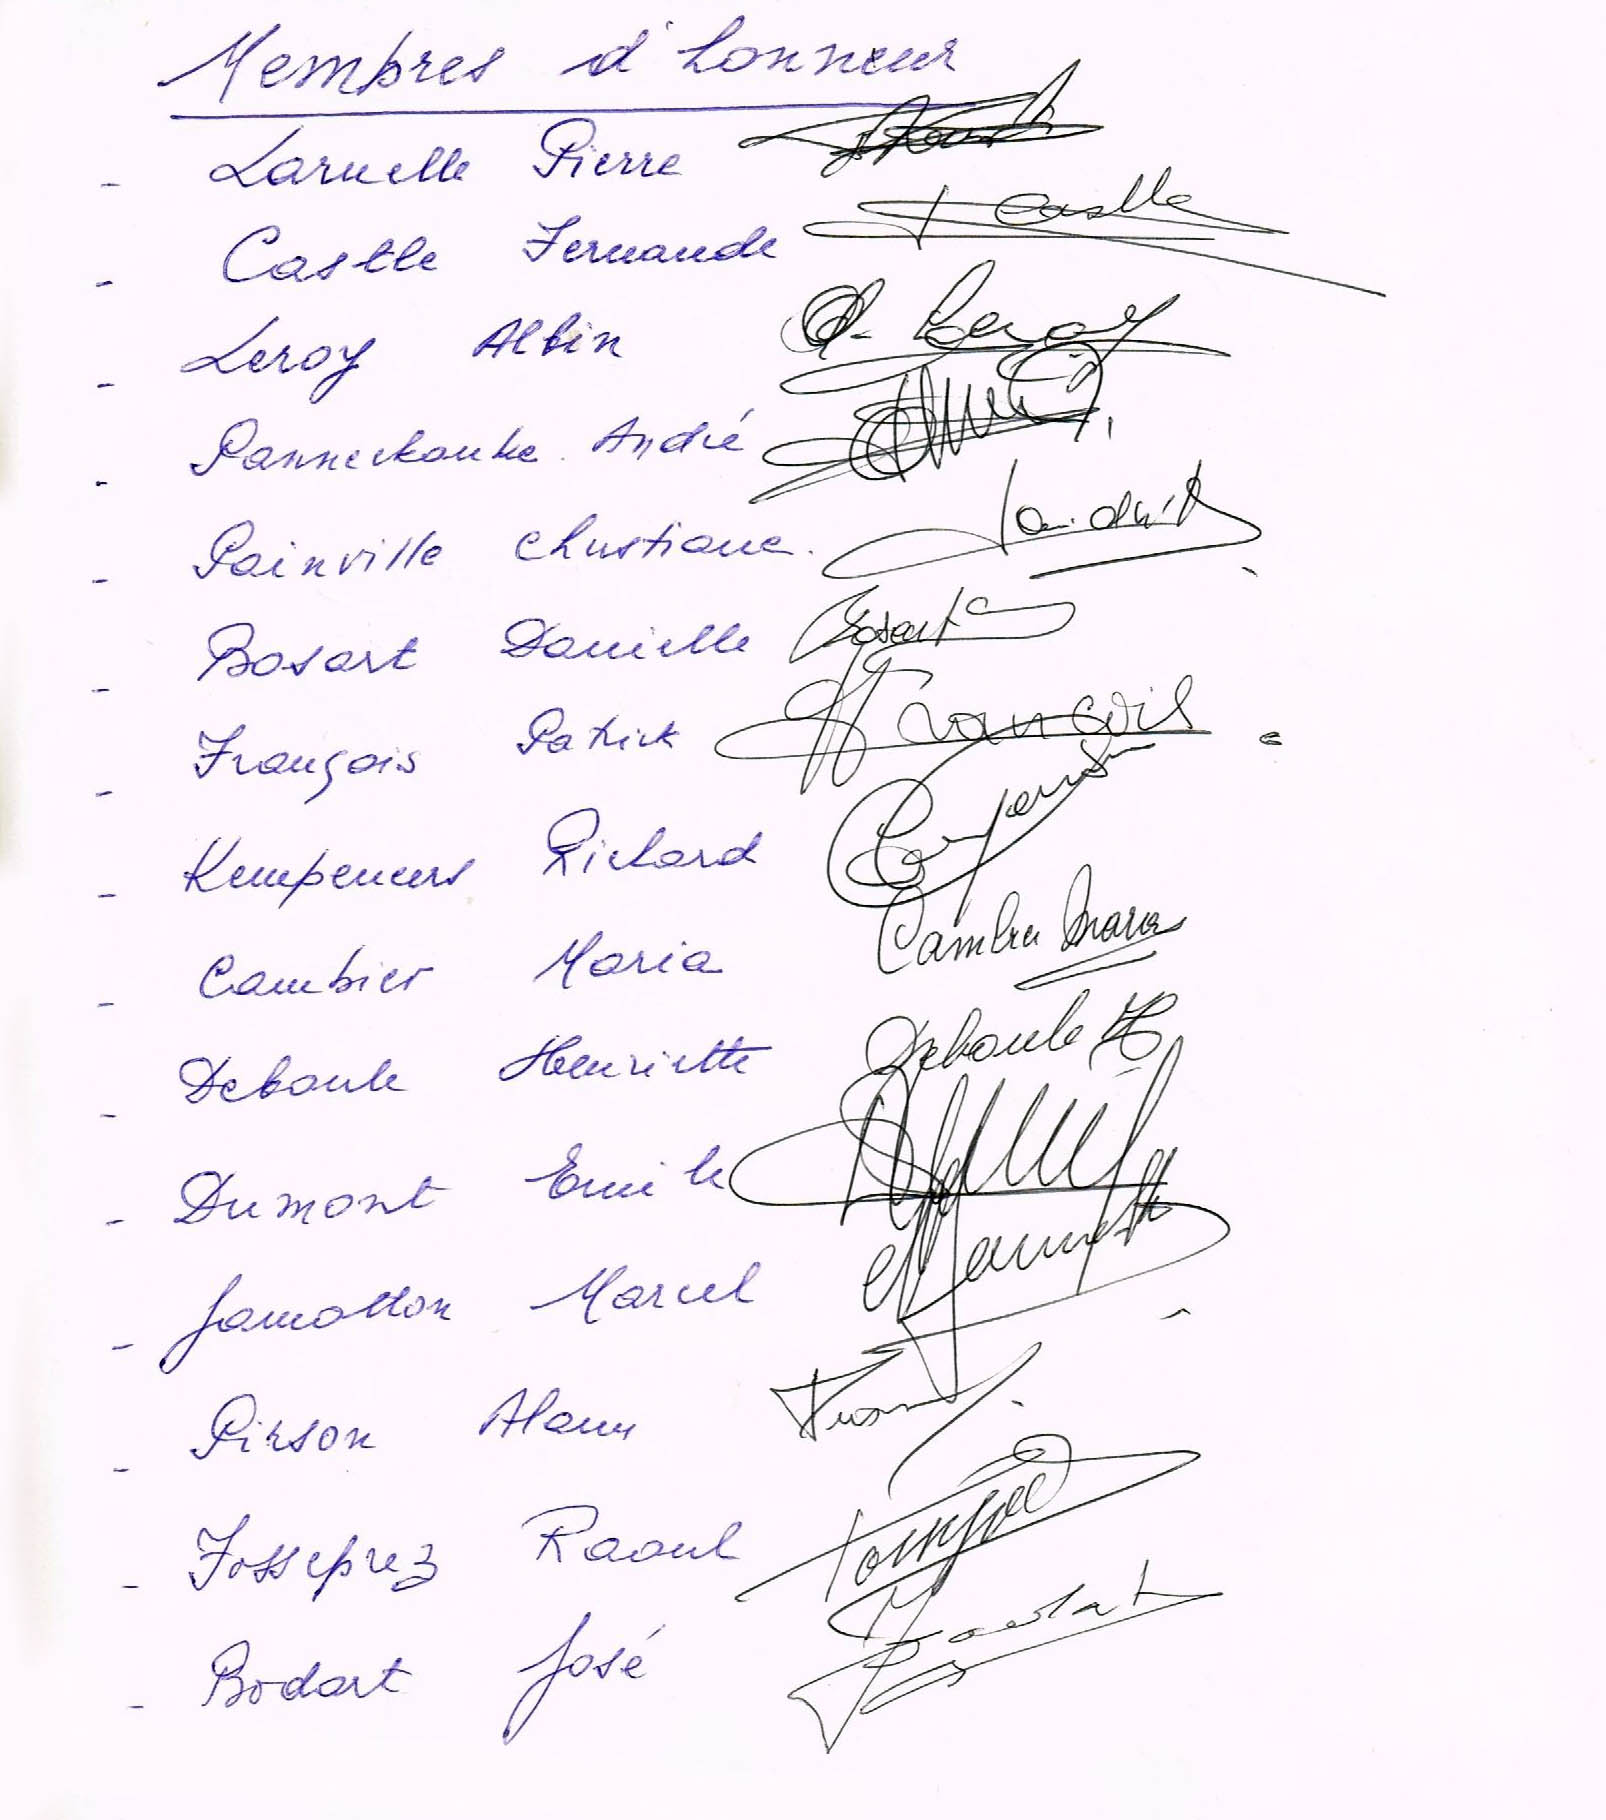 Membres d'honneur
- Laruelle Pierre
- Castle Fernande Castle
- Leroy Albin A. Leroy
- Panneckouke André
- Painville Christiane
- Bosart Danielle Bosart
- François Patrick François
- Kempeneers Richard
- Cambier Maria Cambier Maria
- Deboule Henriette Deboule H
- Dumont Emile
- Jamotton Marcel
- Pirson Alain
- Fosseprez Raoul
- Bodart José Bodart